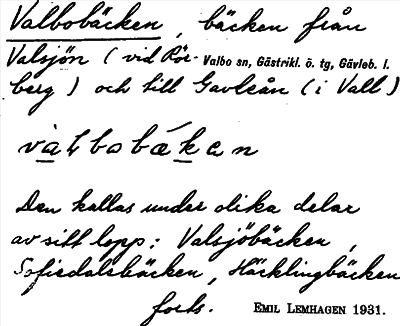 Valbobäcken, bäcken från
Valsjön (vid Rör- Valbo sn, Gästrikl. ö. tg, Gävleb. l.
berg) och till Gavleån (i Vall)
valbobäkan
Den kallas under olika delar
av sitt lopp: Valsjöbäcken,
Sofiedalsbäcken, Häcklingbäcken
forts. EMIL LEMHAGEN 1931.